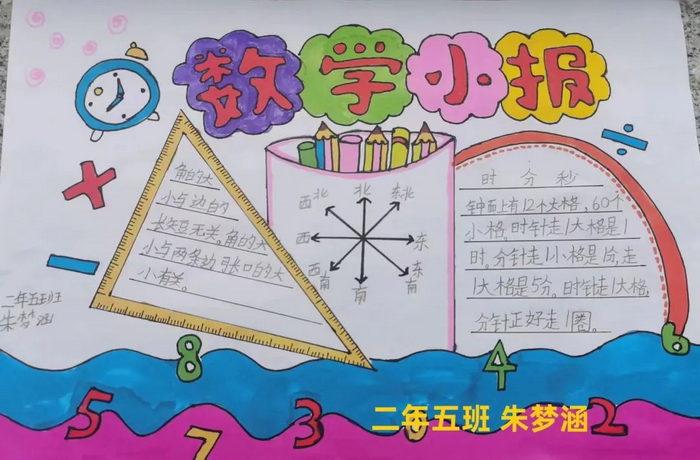 数学小报
角的大
小与边的
长短无关。角的大
小与两条边张口的大
小有关。
西北 北 东北
西 东
西南 南 东南
时分秒
钟面上有12个大格,60个
小格。时针走1大格是1
时。分针走1小格是1分,走
1大格是5分。时针走1大格,
分针正好走1圈。
二年五班
朱梦涵
+
÷
−
8
4
6
5
7
3
2
二年五班 朱梦涵